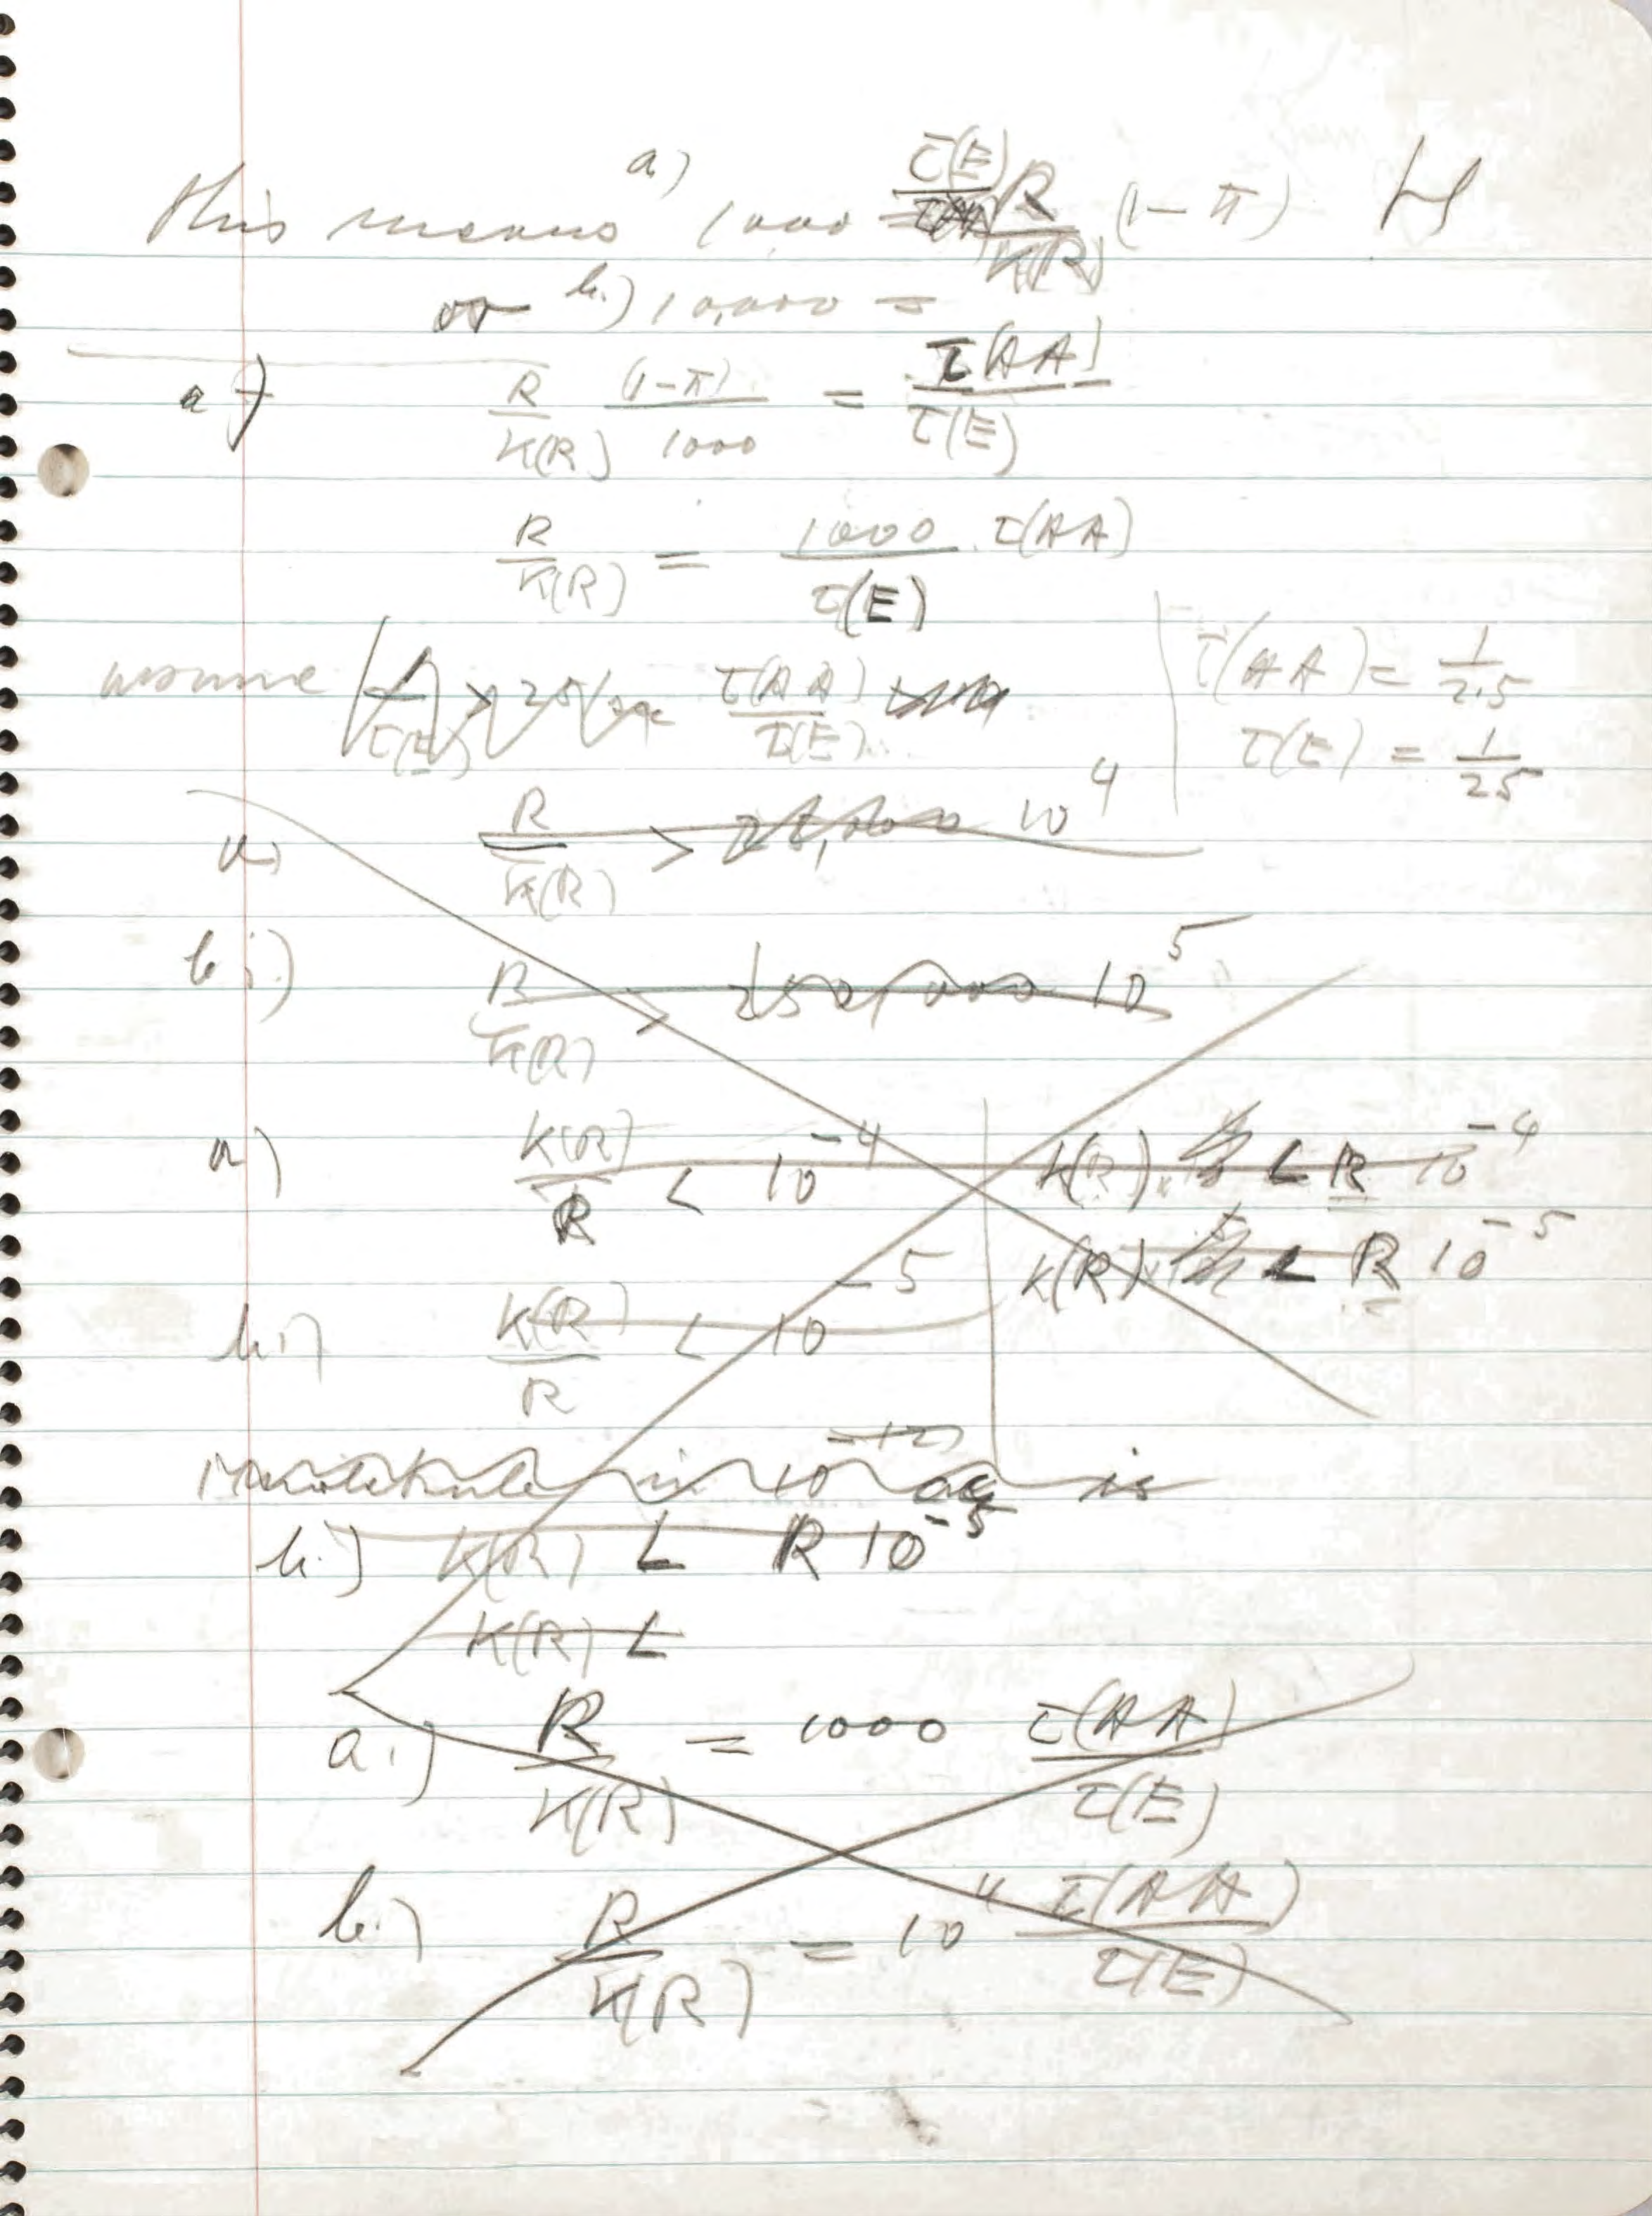 this means a.) 1000 = τ(E)/τ(AA) R/K(R) (1-π) H
or b.) 10,000 =
a.) R/K(R) (1-π)/1000 = τ(AA)/τ(E)
R/K(R) = 1000/τ(E) τ(AA)
assume τ(AA)/τ(E)
τ(AA) = 1/2.5
τ(E) = 1/25
a.) R/K(R) > 25,000 10^4
b.) R/K(R) > 250,000 10^5
a.) K(R)/R < 10^-4
K(R) < R 10^-4
K(R) < R 10^-5
b.) K(R)/R < 10^-5
in 10 is
b.) K(R) < R 10^-5
K(R) <
a.) R/K(R) = 1000 τ(AA)/τ(E)
b.) R/K(R) = 10^4 τ(AA)/τ(E)